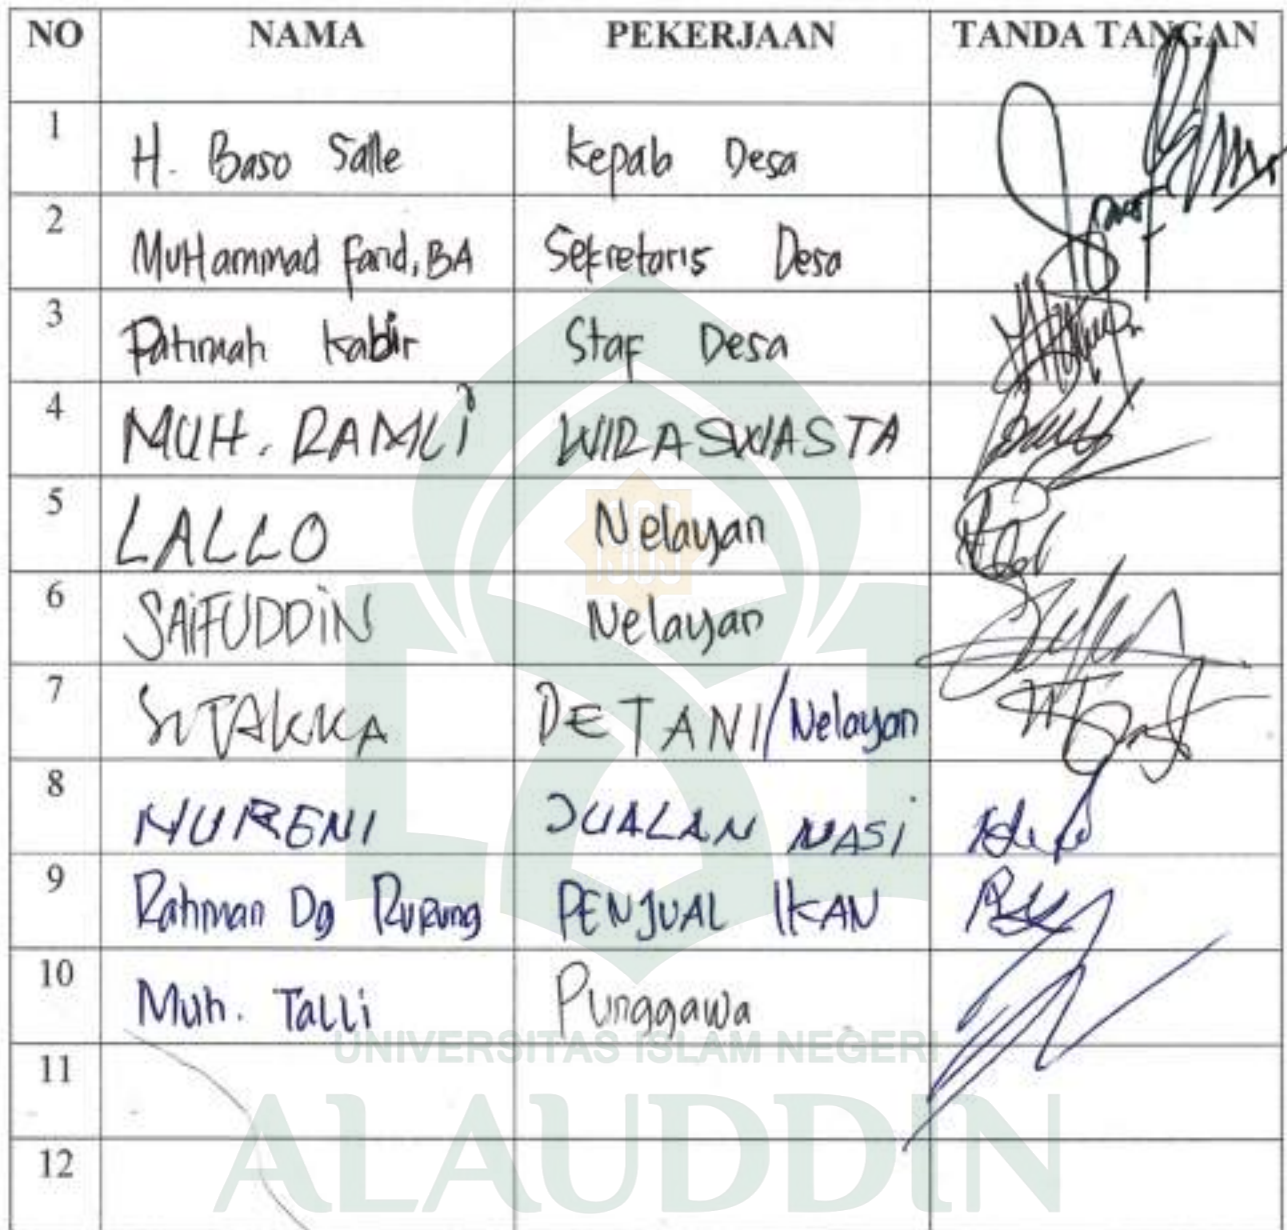 NO NAMA PEKERJAAN TANDA TANGAN
1 H. Baso Salle Kepala Desa
2 MuHammad Farid, BA Sekretaris Desa
3 Patimah Kabir Staf Desa
4 MUH. RAMLi WIRASWASTA
5 LALLO Nelayan
6 SAiFUDDiN Nelayan
7 SiTAKKA PETANI/Nelayan
8 NURENI JUALAN NASi
9 Rahman Dg Rurung PENJUAL IKAN
10 Muh. Talli Punggawa
UNIVERSITAS ISLAM NEGERI
11
ALAUDDIN
12